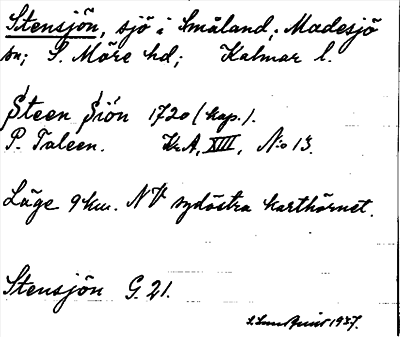 Stensjön, sjö i Småland; Madesjö
sn; S. Möre hd; Kalmar l.
Steen Siön 1720 (kop.).
P. Taleen. Kr.A, XIII, N:o 13.
Läge 9 km. NV sydöstra karthörnet.
Stensjön G. 21.
1937.